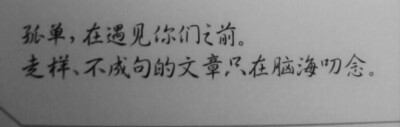 孤单,在遇见你们之前。
走样、不成句的文章只在脑海叨念。